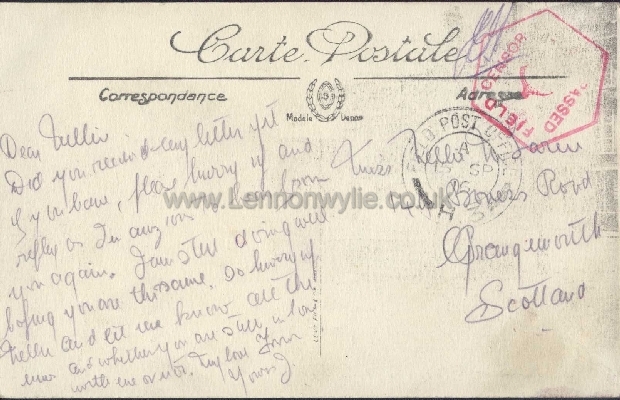 Carte Postale
Correspondance
Adresse
Modele Depose
FIELD CENSOR
PASSED
FIELD POST OFFICE
Dear Nellie
Did you receive any letter yet
If you have, please hurry up and
reply as I'm anxious to hear from
you again. I am still doing well
hoping you are the same. So hurry up
Nellie and let me know all the
news and whether you are still in love
with me or not. My love from
Yours J
Miss Nellie
Bowers Road
Grangemouth
Scotland
www.Lennonwylie.co.uk